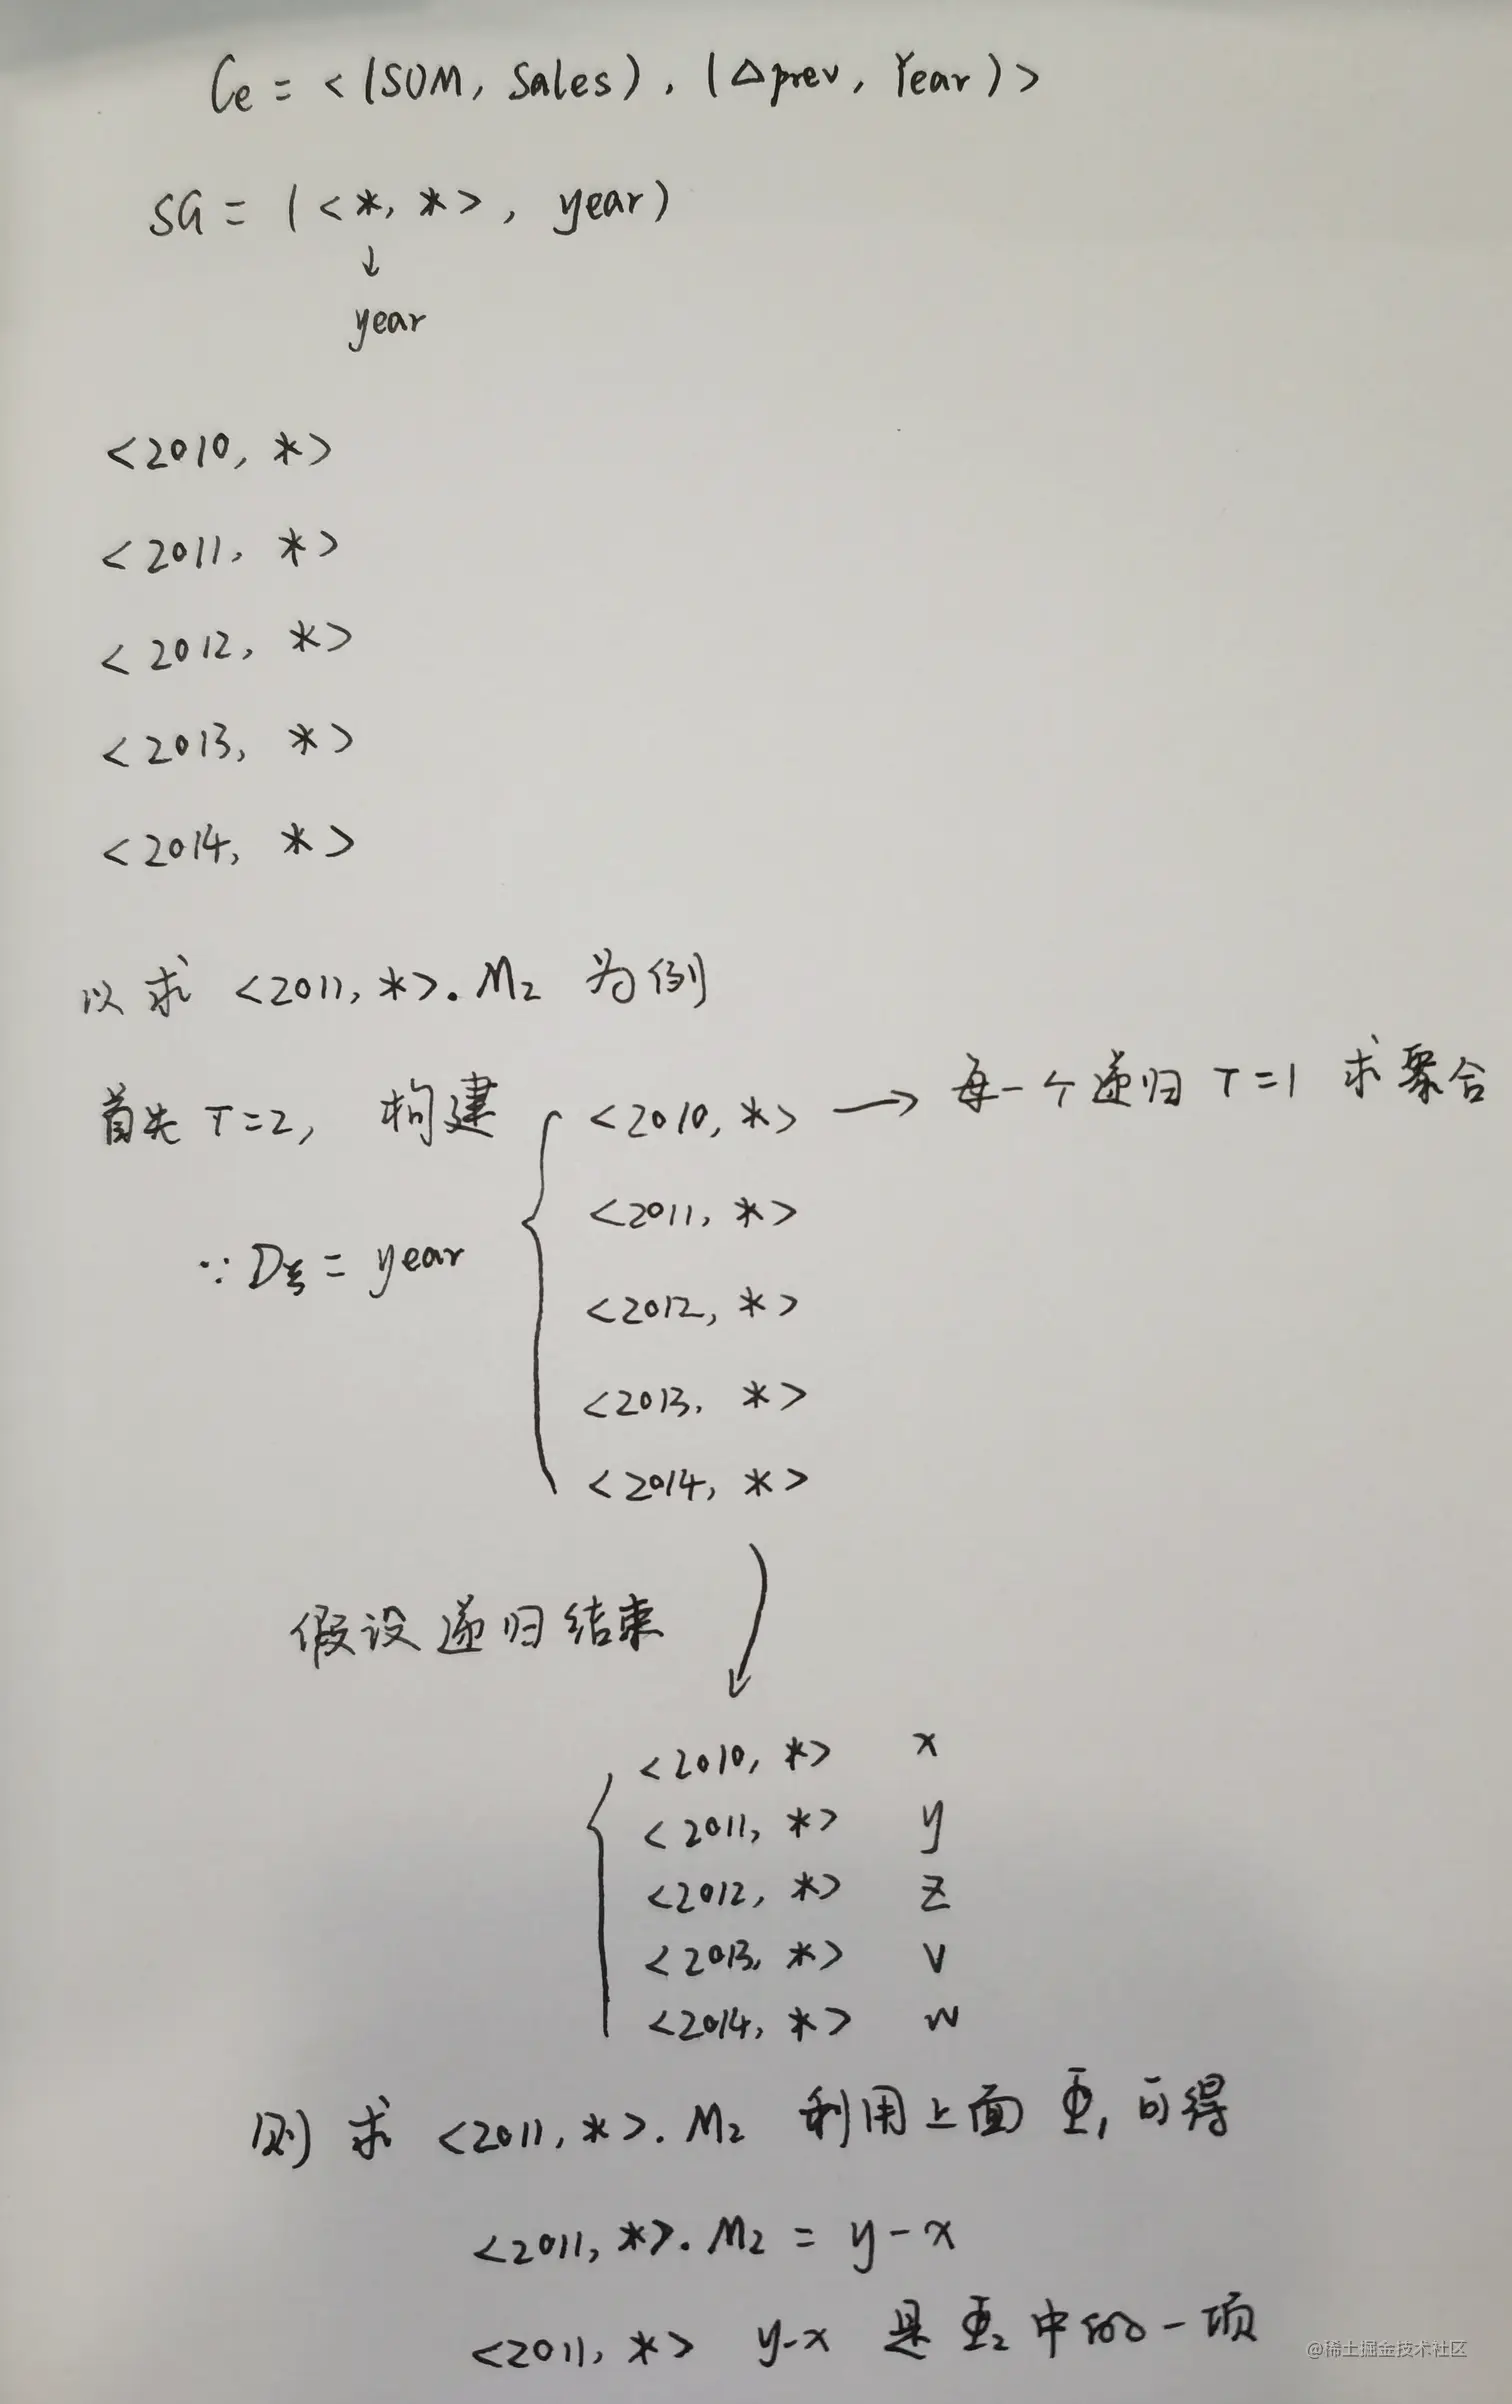 Ce = <(SUM, Sales), (△prev, Year)>
SG = (<*, *>, year)
↓
year
<2010, *>
<2011, *>
<2012, *>
<2013, *>
<2014, *>
以求 <2011, *>.M₂ 为例
首先 T=2, 构建 <2010, *> → 每一个递归 T=1 求聚合
<2011, *>
∵ Dξ = year
<2012, *>
<2013, *>
<2014, *>
假设递归结束
<2010, *> x
<2011, *> y
<2012, *> z
<2013, *> v
<2014, *> w
则求 <2011, *>.M₂ 利用上面 Φ₁ 可得
<2011, *>.M₂ = y-x
<2011, *> y-x 是 Φ₂ 中的一项
@稀土掘金技术社区